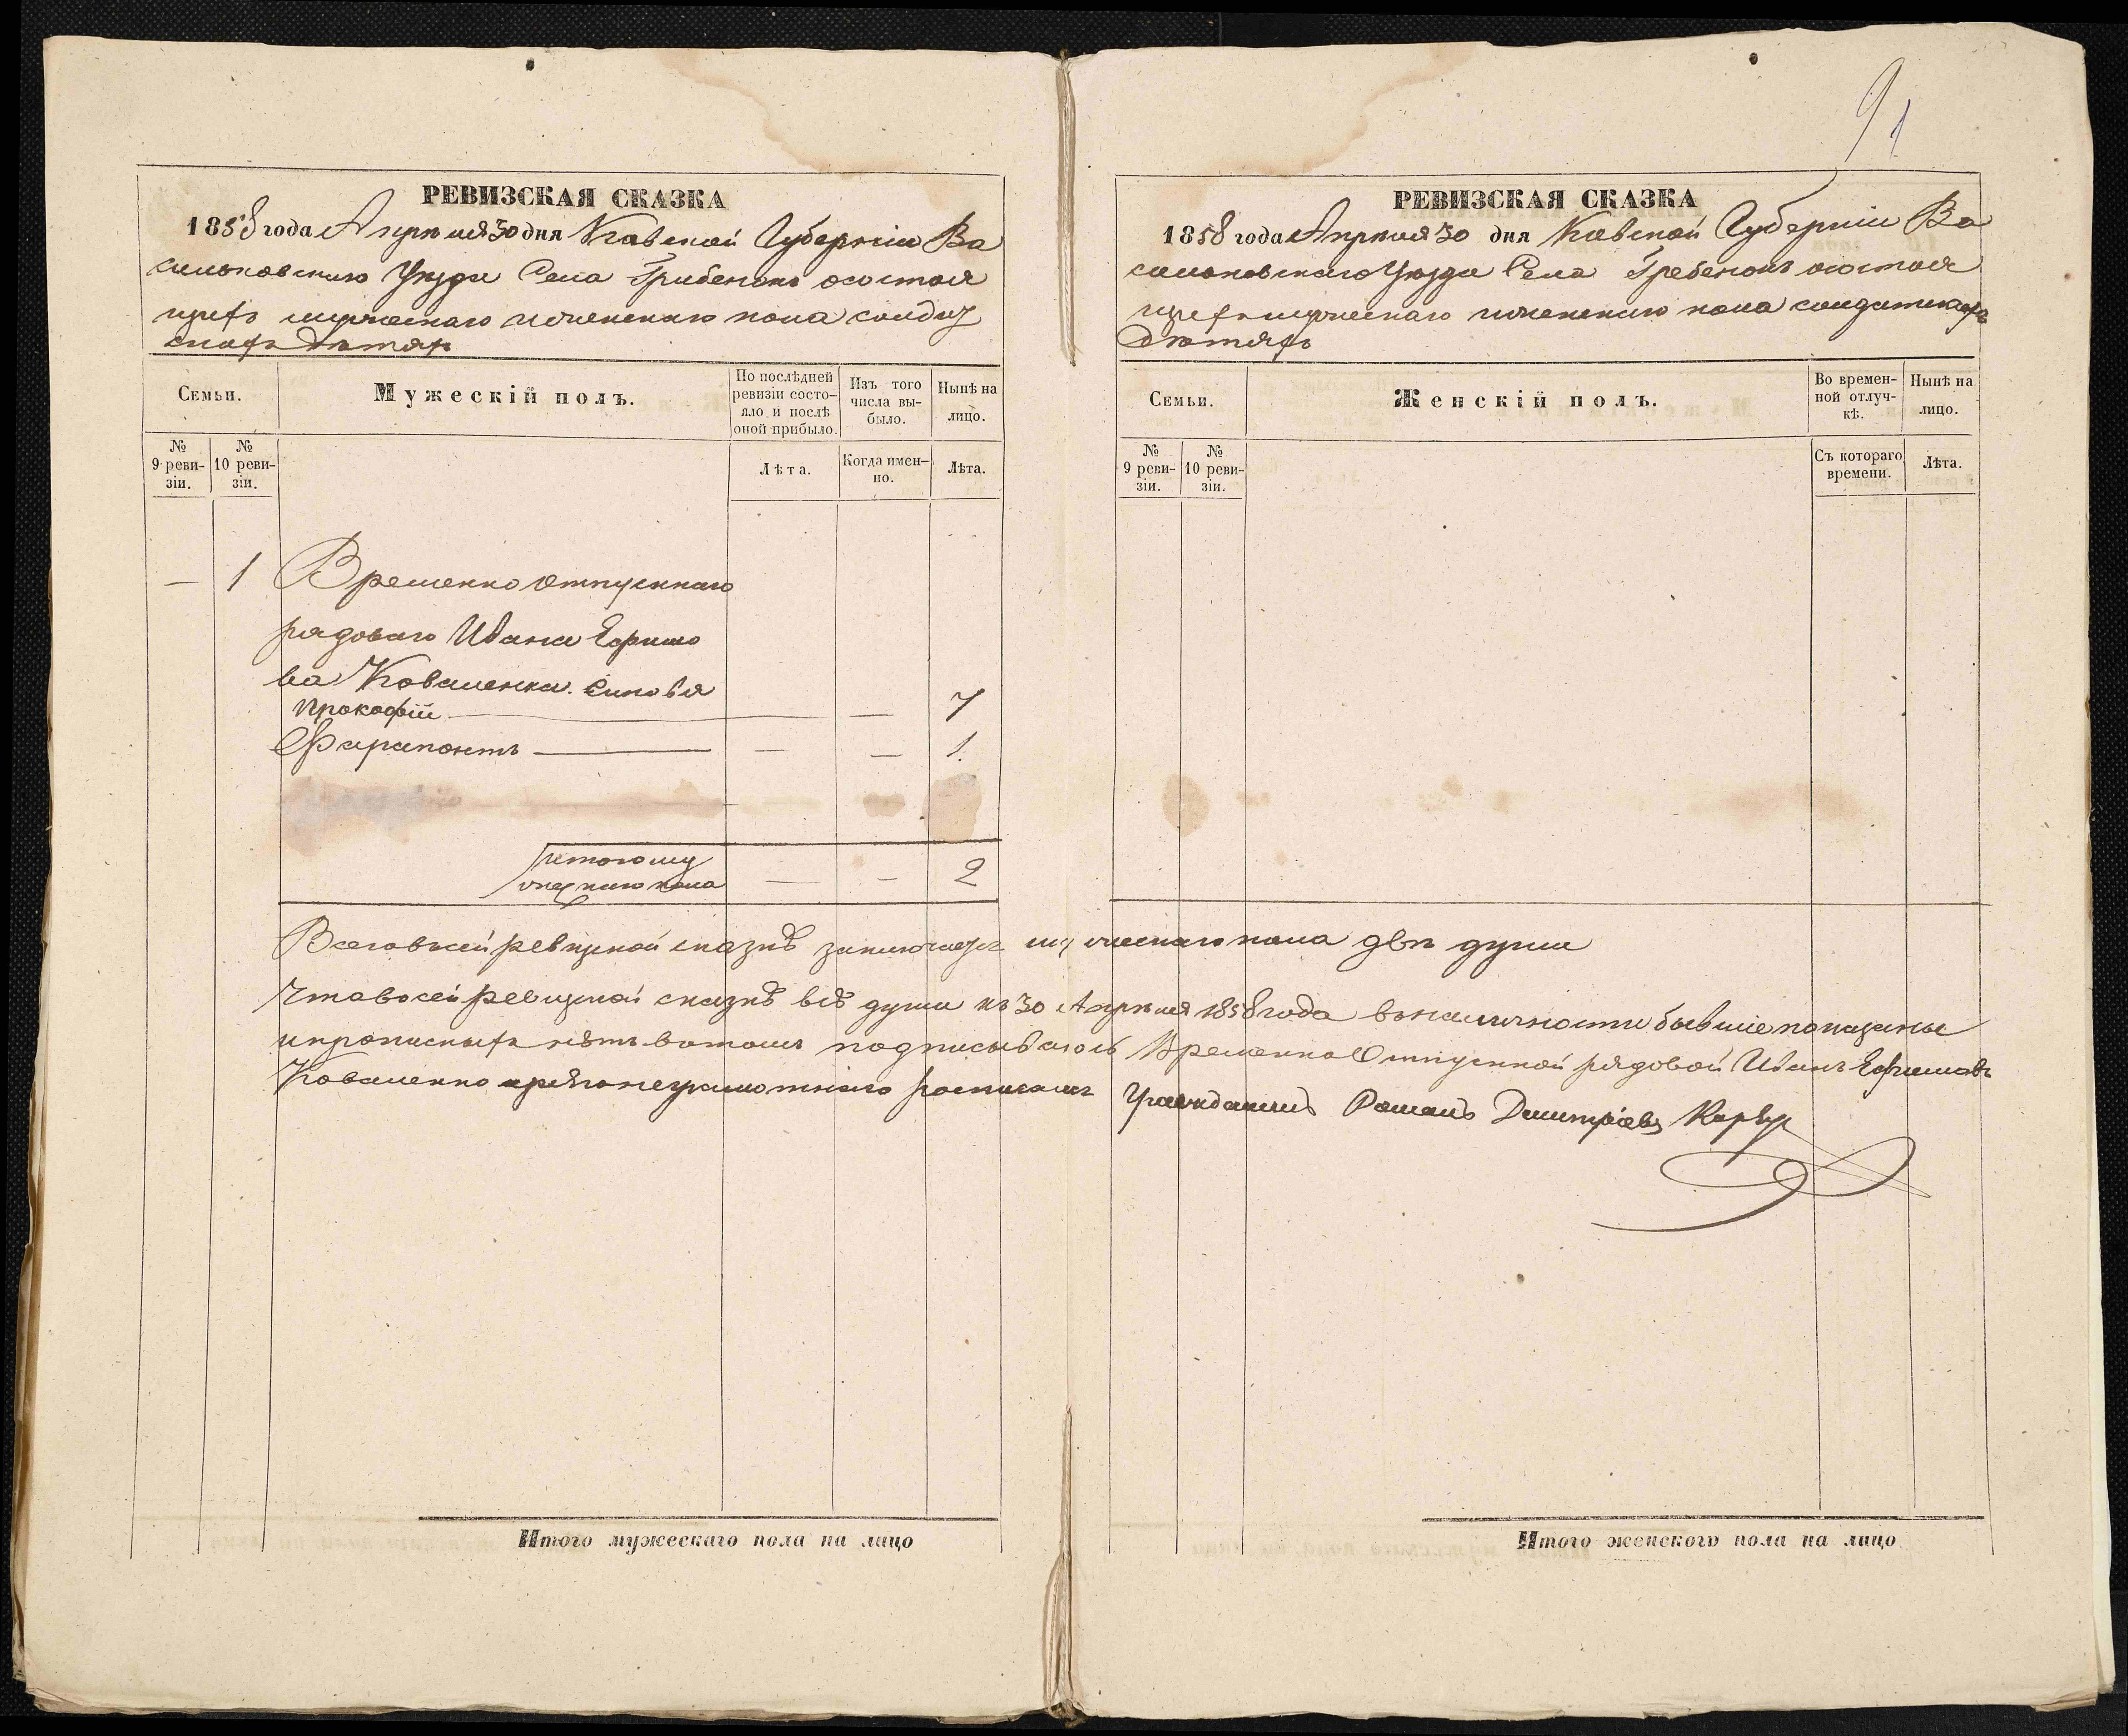 91
РЕВИЗСКАЯ СКАЗКА
1858 года Апрѣля 30 дня Кіевской Губерніи Ва
сильковскаго Уѣзда Села Гребенокъ осостоя
щихъ мужескаго иженскаго пола солдат
скихъ дѣтяхъ
Семьи.
Мужескій полъ.
По послѣдней ревизіи состояло и послѣ оной прибыло.
Изъ того числа выбыло.
Нынѣ на лицо.
№ 9 ревизіи.
№ 10 ревизіи.
Лѣта.
Когда именно.
Лѣта.
— 1 Временно отпускнаго
рядоваго Ивана Ефимо
ва Коваленка. Синовя
Прокофій — — 7
Фарапонтъ — — — 1.
Итого му
жескаго пола — — 2
РЕВИЗСКАЯ СКАЗКА
1858 года Апрѣля 30 дня Кіевской Губерніи Ва
сильковскаго Уѣзда Села Гребенокъ осостоя
щихъ мужескаго иженскаго пола солдатскихъ
Дѣтяхъ
Семьи.
Женскій полъ.
Во временной отлучкѣ.
Нынѣ на лицо.
№ 9 ревизіи.
№ 10 ревизіи.
Съ котораго времени.
Лѣта.
Всего всей ревизкой сказкѣ заключает мужескаго пола двѣ души
Что восей ревизкой сказкѣ всѣ души къ 30 Апрѣля 1858 года вналичности бывшіе показаны
ипрописныхъ нѣтъ вотомъ подписываюсь Временно Отпускной рядовой Иванъ Ефимовъ
Коваленко неграмотнаго росписался Гражданинъ Романъ Дмитріевъ
Итого мужескаго пола на лицо
Итого женскаго пола на лицо